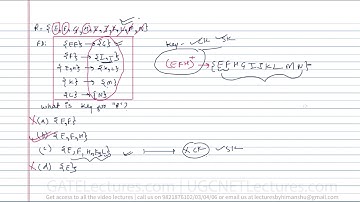 R = {E, F, G, H, I, J, K, L, M, N} key → CK SK
FD: {EF} → {G}
{F} → {I, J} (EFH)+ → {E F H G I J K L M N}
{E, H} → {K, L}
{K} → {M}
{L} → {N}
what is key for "R"?
X (a) {E, F}
(b) {E, F, H}
(c) {E, F, H, K, L} ✓ → XCK ✓SK
X (d) {E}
GATELectures.com | UGCNETLectures.com
Get access to all the video lectures | call us on 9821876102/03/04/06 or email us at:lecturesbyhimanshu@gmail.com